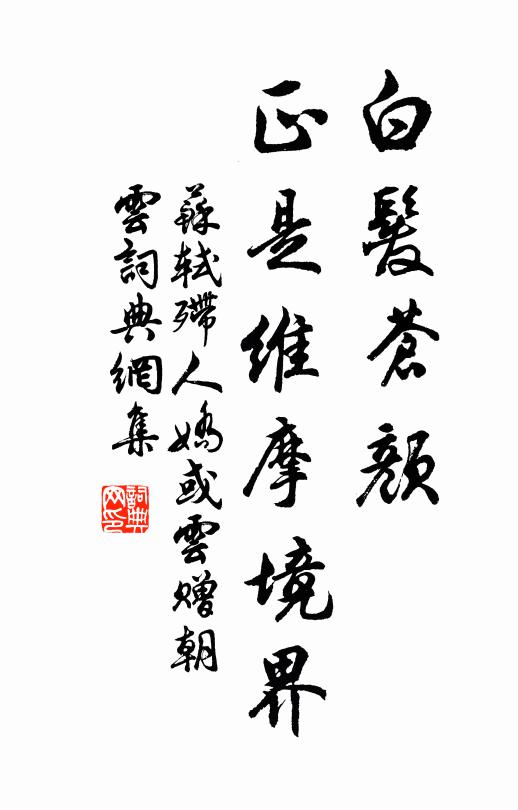 白髮蒼顏
正是維摩境界
蘇軾殢人嬌或雲贈朝
雲詞典網集
詞典
网印